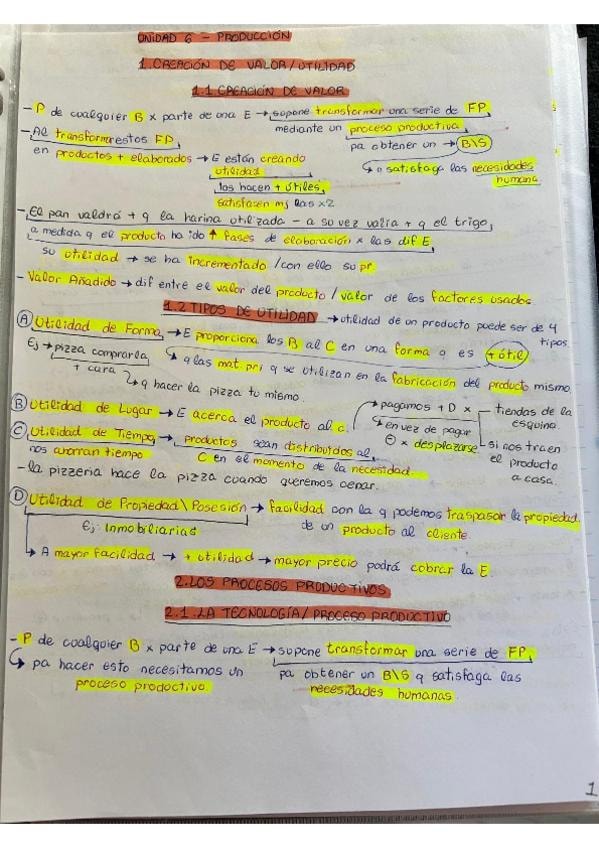 UNIDAD 6 - PRODUCCIÓN
1. CREACIÓN DE VALOR / UTILIDAD
1.1 CREACIÓN DE VALOR
- P de cualquier B x parte de una E → supone transformar una serie de FP,
mediante un proceso productiva,
pa obtener un → B\S
- Al transformar estos FP,
en productos + elaborados → E están creando
utilidad
q satisfaga las necesidades
humana
los hacen + útiles,
satisfacen mj las x2
- El pan valdrá + q la harina utilizada - a su vez valía + q el trigo,
a medida q el producto ha ido ↑ fases de elaboración x las dif E,
su utilidad → se ha incrementado / con ello su pr.
- Valor Añadido → dif entre el valor del producto / valor de los factores usados.
1.2 TIPOS DE UTILIDAD → utilidad de un producto puede ser de 4
tipos.
A Utilidad de Forma → E proporciona los B al C en una forma q es + útil
Ej → pizza comprarla
+ cara
q las mat. pri q se utilizan en la fabricación del producto mismo
q hacer la pizza tu mismo.
B Utilidad de Lugar → E acerca el producto al c.
pagamos + D x
en vez de pagar
⊖ x desplazarse
tiendas de la
esquina.
si nos traen
el producto
a casa.
C Utilidad de Tiempo → productos sean distribuidos al
nos ahorran tiempo C en el momento de la necesidad.
- la pizzeria hace la pizza cuando queremos cenar.
D Utilidad de Propiedad \ Posesión → facilidad con la q podemos traspasar la propiedad
de un producto al cliente.
Ej Inmobiliarias
A mayor facilidad → + utilidad → mayor precio podrá cobrar la E.
2. LOS PROCESOS PRODUCTIVOS
2.1. LA TECNOLOGÍA / PROCESO PRODUCTIVO
- P de cualquier B x parte de una E → supone transformar una serie de FP,
pa hacer esto necesitamos un
proceso productivo.
pa obtener un B\S q satisfaga las
necesidades humanas.
1